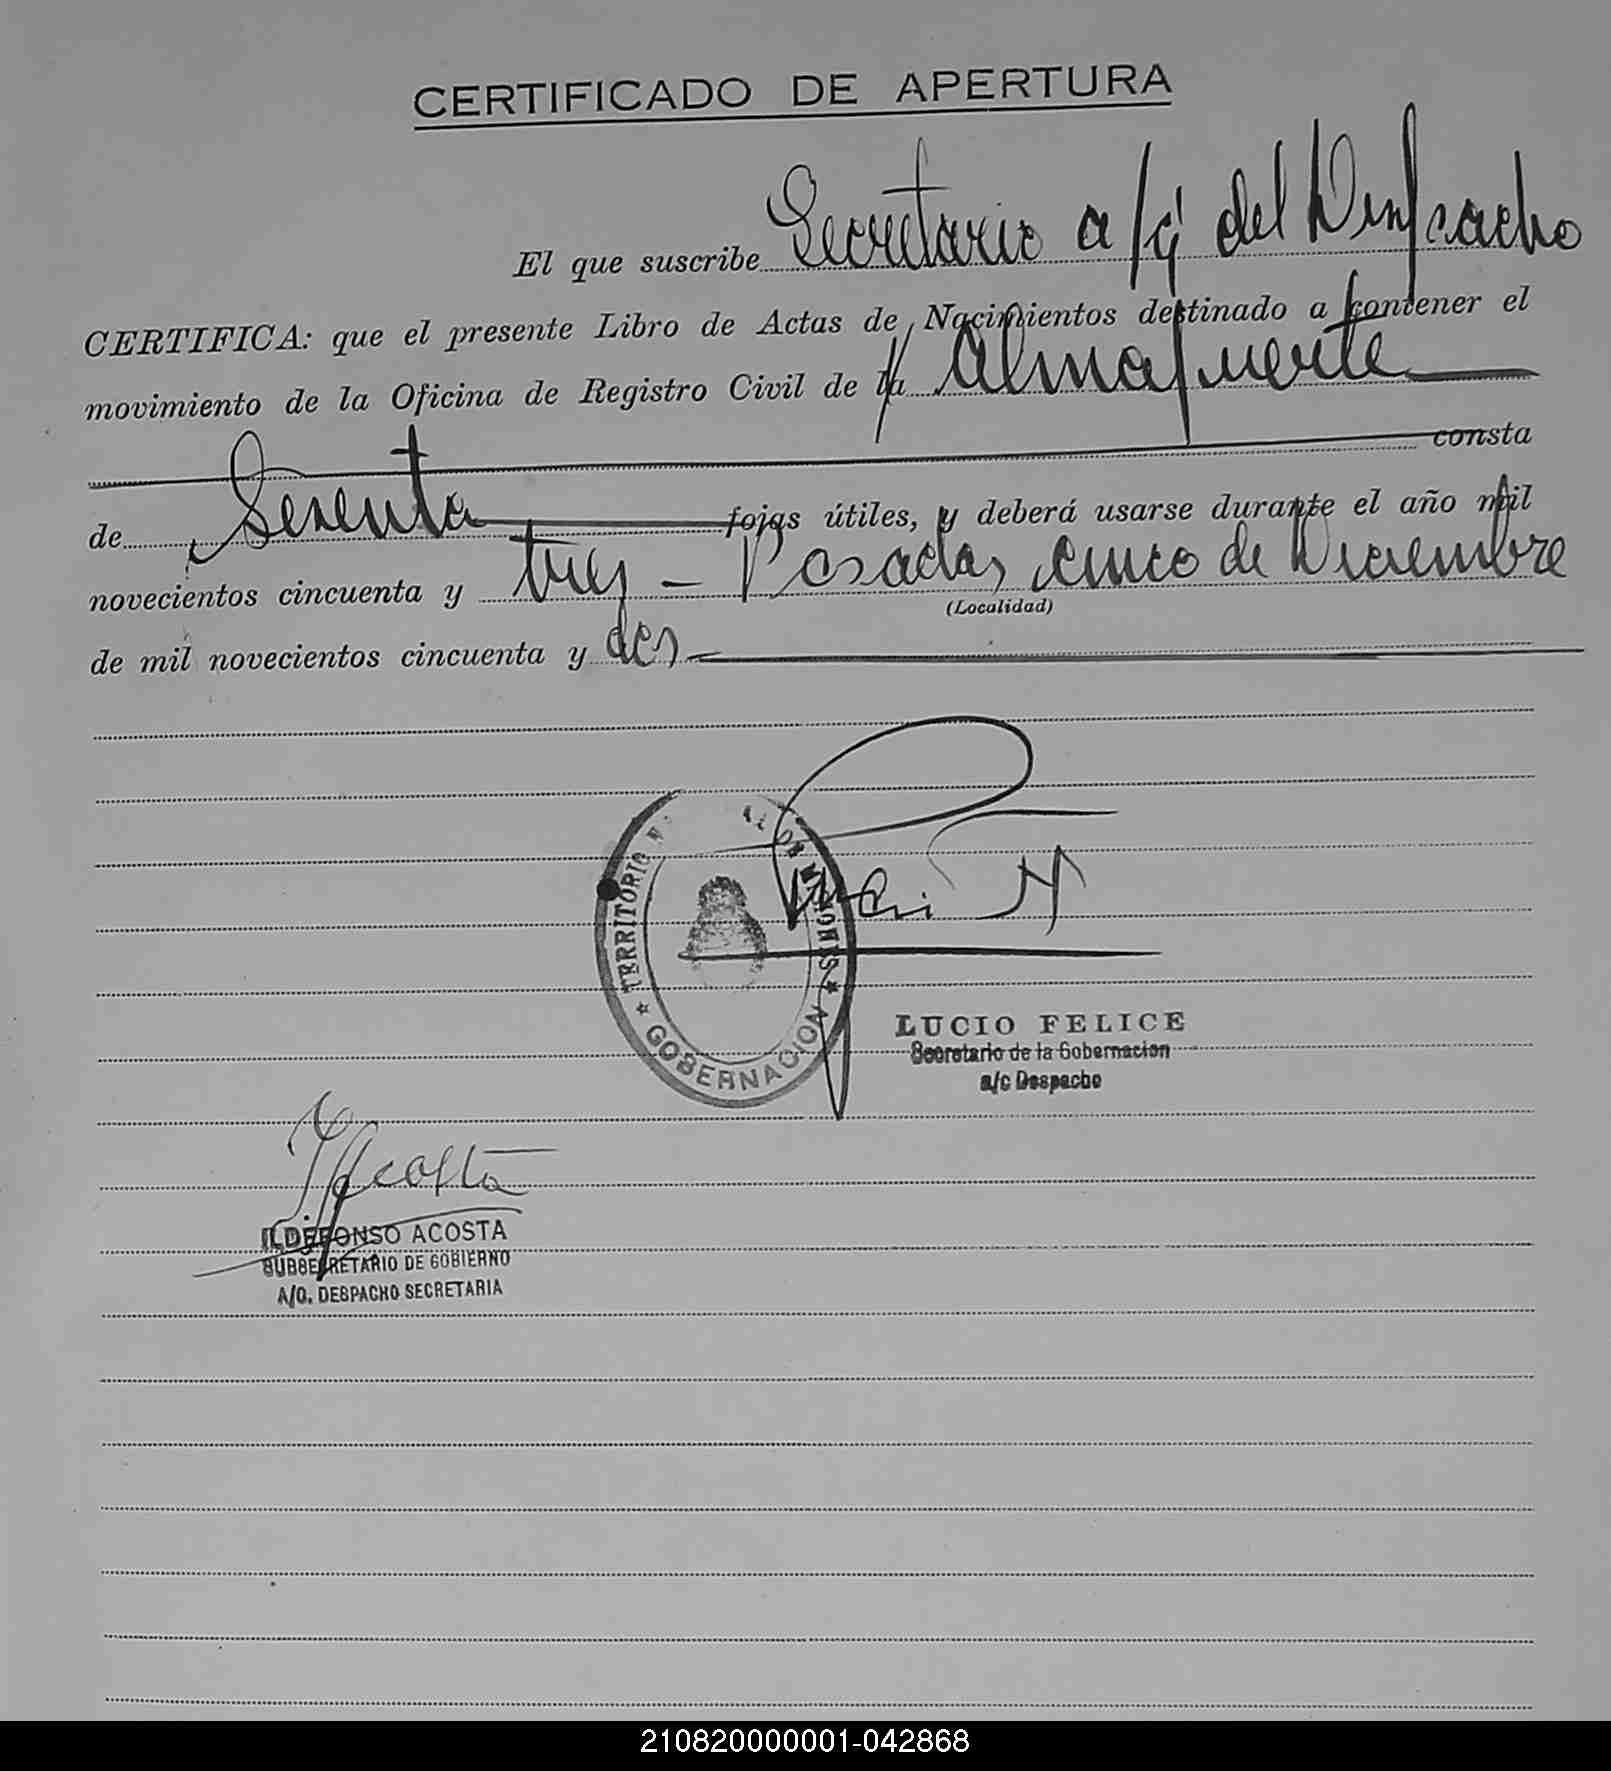 CERTIFICADO DE APERTURA
El que suscribe Secretario a/c del Despacho
CERTIFICA: que el presente Libro de Actas de Nacimientos destinado a contener el
movimiento de la Oficina de Registro Civil de la Almafuerte
consta
de Sesenta fojas útiles, y deberá usarse durante el año mil
novecientos cincuenta y tres - Posadas, cinco de Diciembre
(Localidad)
de mil novecientos cincuenta y dos
TERRITORIO MISIONES
★ GOBERNACION ★
LUCIO FELICE
Secretario de la Gobernacion
a/c Despacho
Acosta
ILDEFONSO ACOSTA
SUBSECRETARIO DE GOBIERNO
A/C. DESPACHO SECRETARIA
210820000001-042868